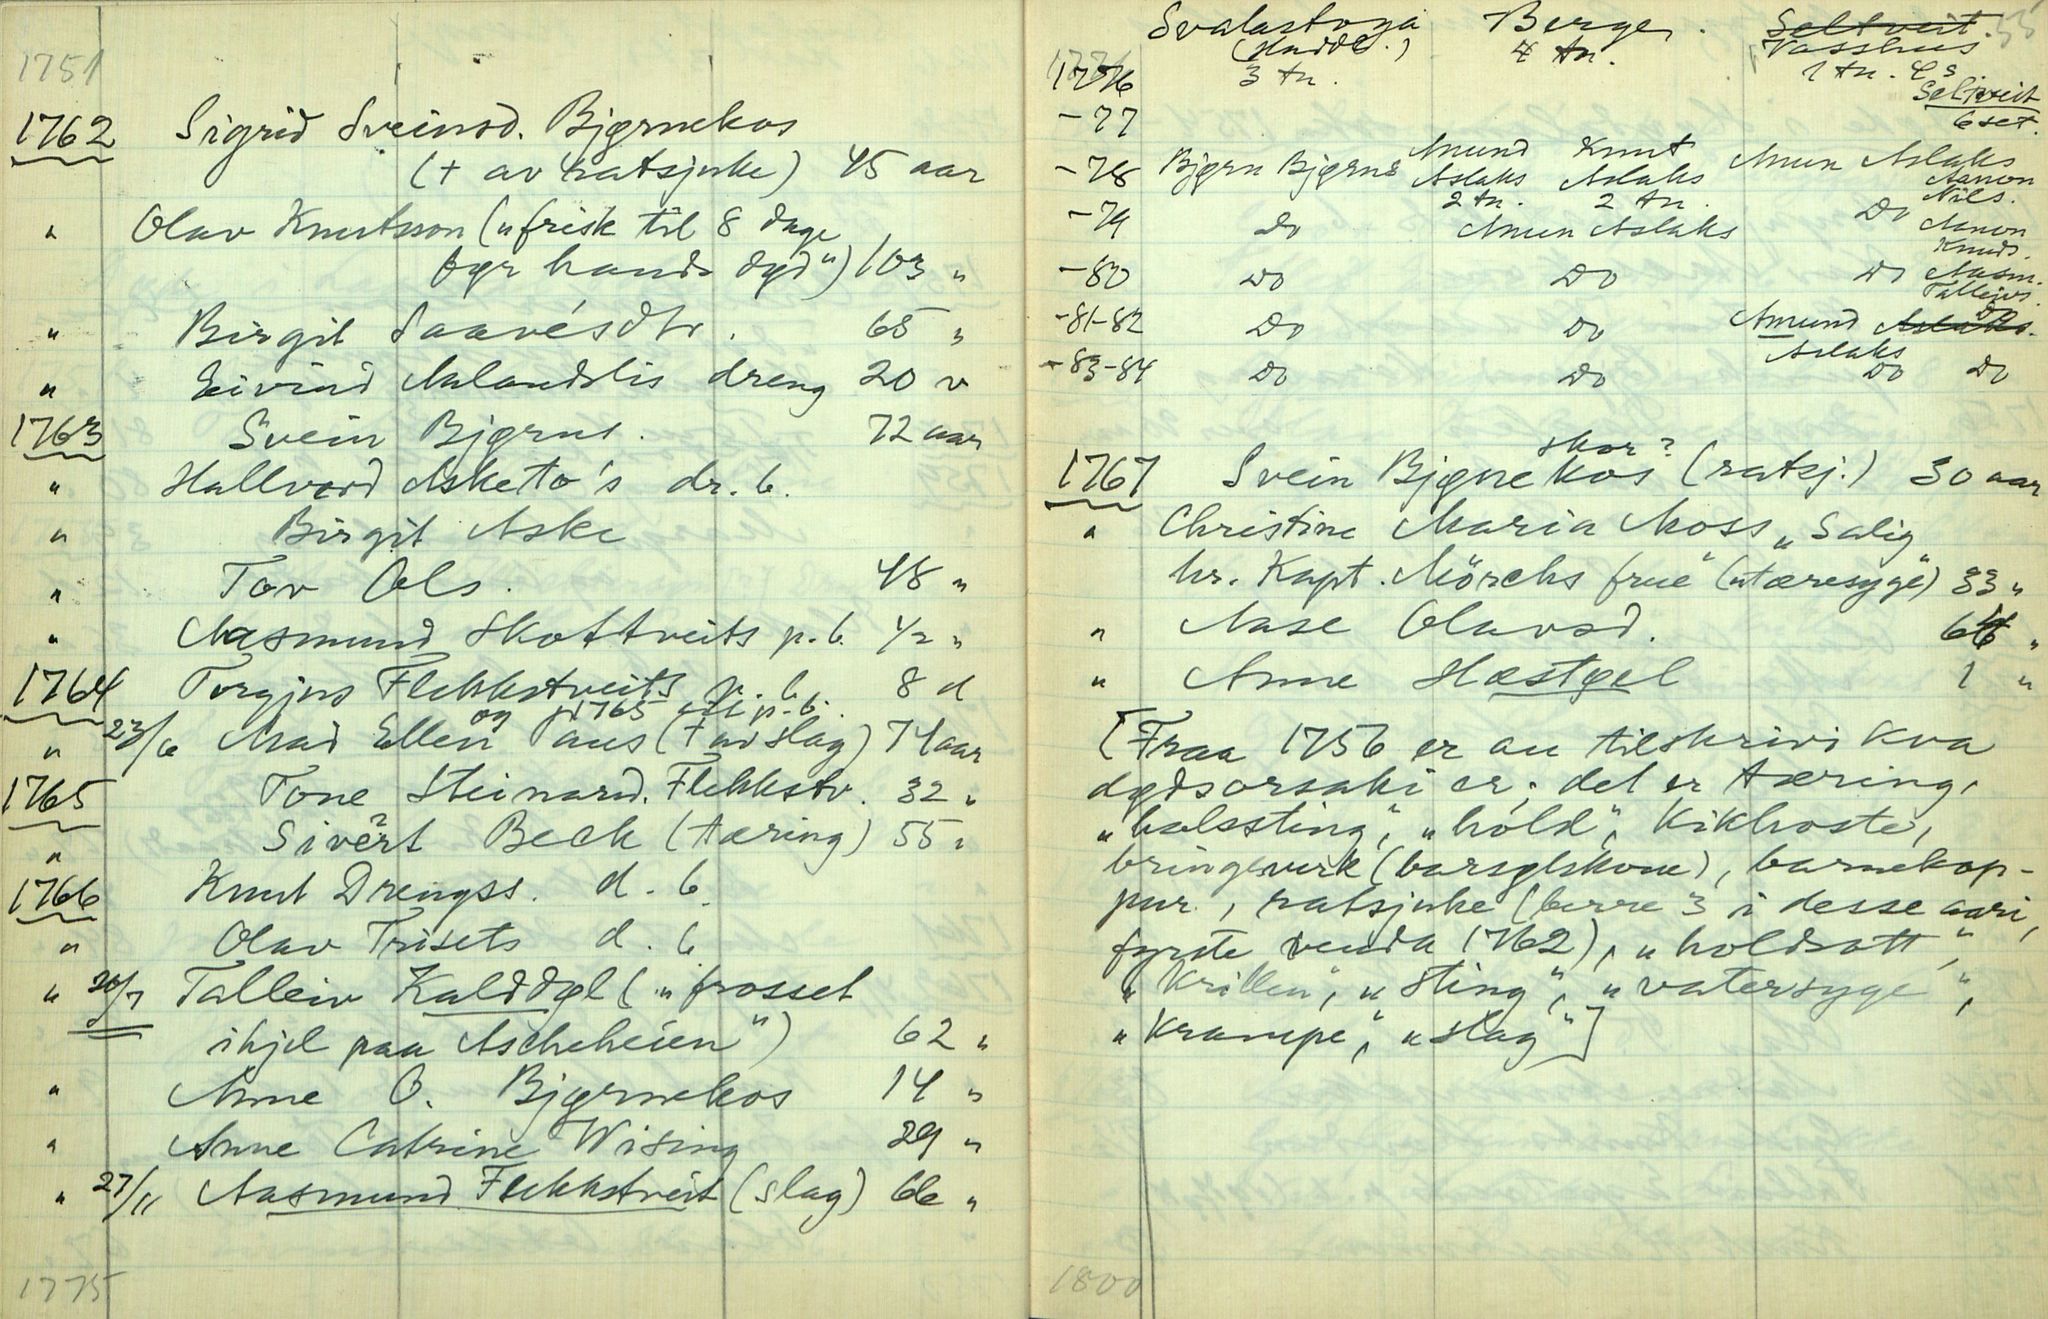 1751
1762 Sigrid Sveinsd. Bjørnekos
(+ av ratsjuke) 45 aar
" Olav Knutsson („frisk til 8 dage
før hands død") 103 "
" Birgit Saavésdtr. 65 "
" Eivind Aalandslis dreng 20 v
1763 Svein Bjørns. 72 aar
" Hallvord Asketo's dr. b.
" Birgit Aske
" Tov Ols. 48 "
" Aasmund Skottveits p. b. 1/2 "
1764 Torgjus Flekkstveits p. b. 8 d
og 1765 p. b.
" 23/6 Mad Ellen Paus (+ av slag) 74 aar
1765 Tone Steinard. Flekkstv. 32 "
" Sivert ? Beck (tæring) 55 "
1766 Knut Drengss. d. b.
" Olav Trisets d. b.
" 20/7 Talleiv Kalddøl („frosset
ihjel paa Ascheheien") 62 "
" Anne O. Bjørnekos 14 "
" Anne Catrine Wising 29 "
" 27/11 Aasmund Flekkstveit (slag) 66 "
1775
Svalastoga Berge. Seltveit.
(Hadde.) 4 tn. Vasshus
1776 3 tn. 1 tn. 4 s.
Seltveit
-77 6 set.
-78 Bjørn Bjørns Amund Aslaks 2 tn. Knut Aslaks 2 tn. Amun Aslaks Aanon Nils.
-79 Do Amun Aslaks Do Aanon Knuds.
-80 Do Do Do Aasm. Talleivs.
-81-82 Do Do Amund Aslaks. Do
Aslaks
-83-84 Do Do Do Do
skor?
1767 Svein Bjørnekos (ratsj.) 30 aar
" Christine Maria Moss „Salig
hr. Kapt. Mörchs frue" („tæresyge") 33 "
" Aase Olavsd. 66 "
" Anne Hæstgel 1 "
[Fraa 1756 er au tilskrivi kva
dødsorsaki er; det er tæring,
„halssting", „hold", Kikhoste,
bringeverk (barselskone), barnekop-
pur, ratsjuke (berre 3 i desse aari,
fyrste venda 1762), „holdsott",
„Krillen", „Sting", „vatersyge",
„Krampe", „slag"]
1800